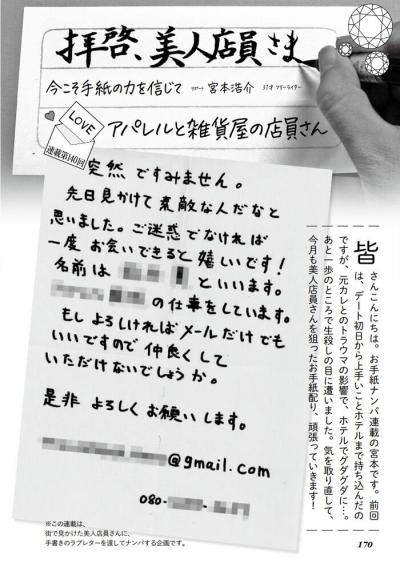 拝啓、美人店員さま
今こそ手紙の力を信じて リポート 宮本浩介 37才 フリーライター
LOVE
連載第140回
アパレルと雑貨屋の店員さん
突然ですみません。
先日見かけて素敵な人だなと
思いました。ご迷惑でなければ
一度お会いできると嬉しいです!
名前は といいます。
の仕事をしています。
もしよろしければメールだけでも
いいですので仲良くして
いただけないでしょうか。
是非よろしくお願いします。
@gmail.com
080-
皆さんこんにちは。お手紙ナンパ連載の宮本です。前回
は、デート初日から上手いことホテルまで持ち込んだの
ですが、元カレとのトラウマの影響で、ホテルでグダグダに…。
あと一歩のところで生殺しの目に遭いました。気を取り直して、
今月も美人店員さんを狙ったお手紙配り、頑張っていきます!
※この連載は、
街で見かけた美人店員さんに、
手書きのラブレターを渡してナンパする企画です。
170